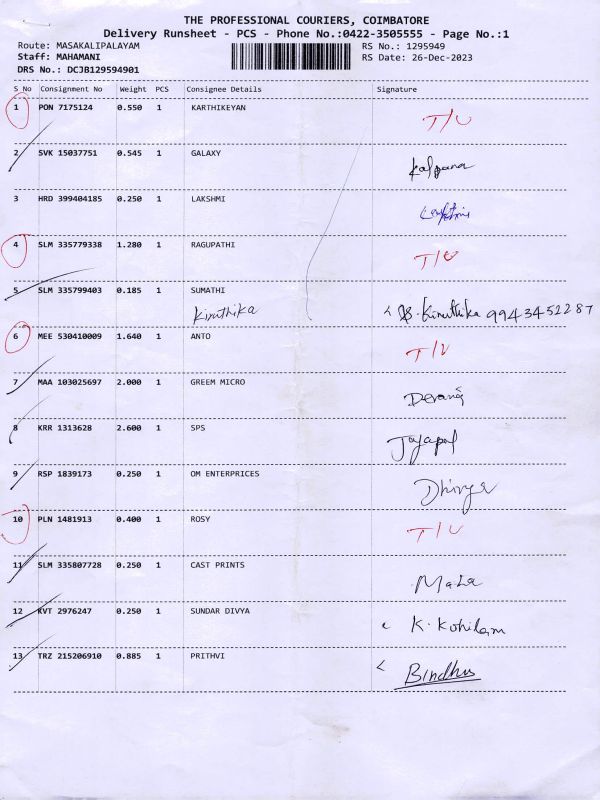 THE PROFESSIONAL COURIERS, COIMBATORE
Delivery Runsheet - PCS - Phone No.:0422-3505555 - Page No.:1
Route: MASAKALIPALAYAM RS No.: 1295949
Staff: MAHAMANI RS Date: 26-Dec-2023
DRS No.: DCJB129594901
S No Consignment No Weight PCS Consignee Details Signature
1 PON 7175124 0.550 1 KARTHIKEYAN
T/U
2 SVK 15037751 0.545 1 GALAXY
Kalpana
3 HRD 399404185 0.250 1 LAKSHMI
4 SLM 335779338 1.280 1 RAGUPATHI
T/U
5 SLM 335799403 0.185 1 SUMATHI
Kiruthika Kiruthika 9943451287
6 MEE 530410009 1.640 1 ANTO
T/U
7 MAA 103025697 2.000 1 GREEM MICRO
Devang
8 KRR 1313628 2.600 1 SPS
Jayapal
9 RSP 1839173 0.250 1 OM ENTERPRICES
Dhivya
10 PLN 1481913 0.400 1 ROSY
T/U
11 SLM 335807728 0.250 1 CAST PRINTS
Mala
12 KVT 2976247 0.250 1 SUNDAR DIVYA
K. Kohilam
13 TRZ 215206910 0.885 1 PRITHVI
Bindhu